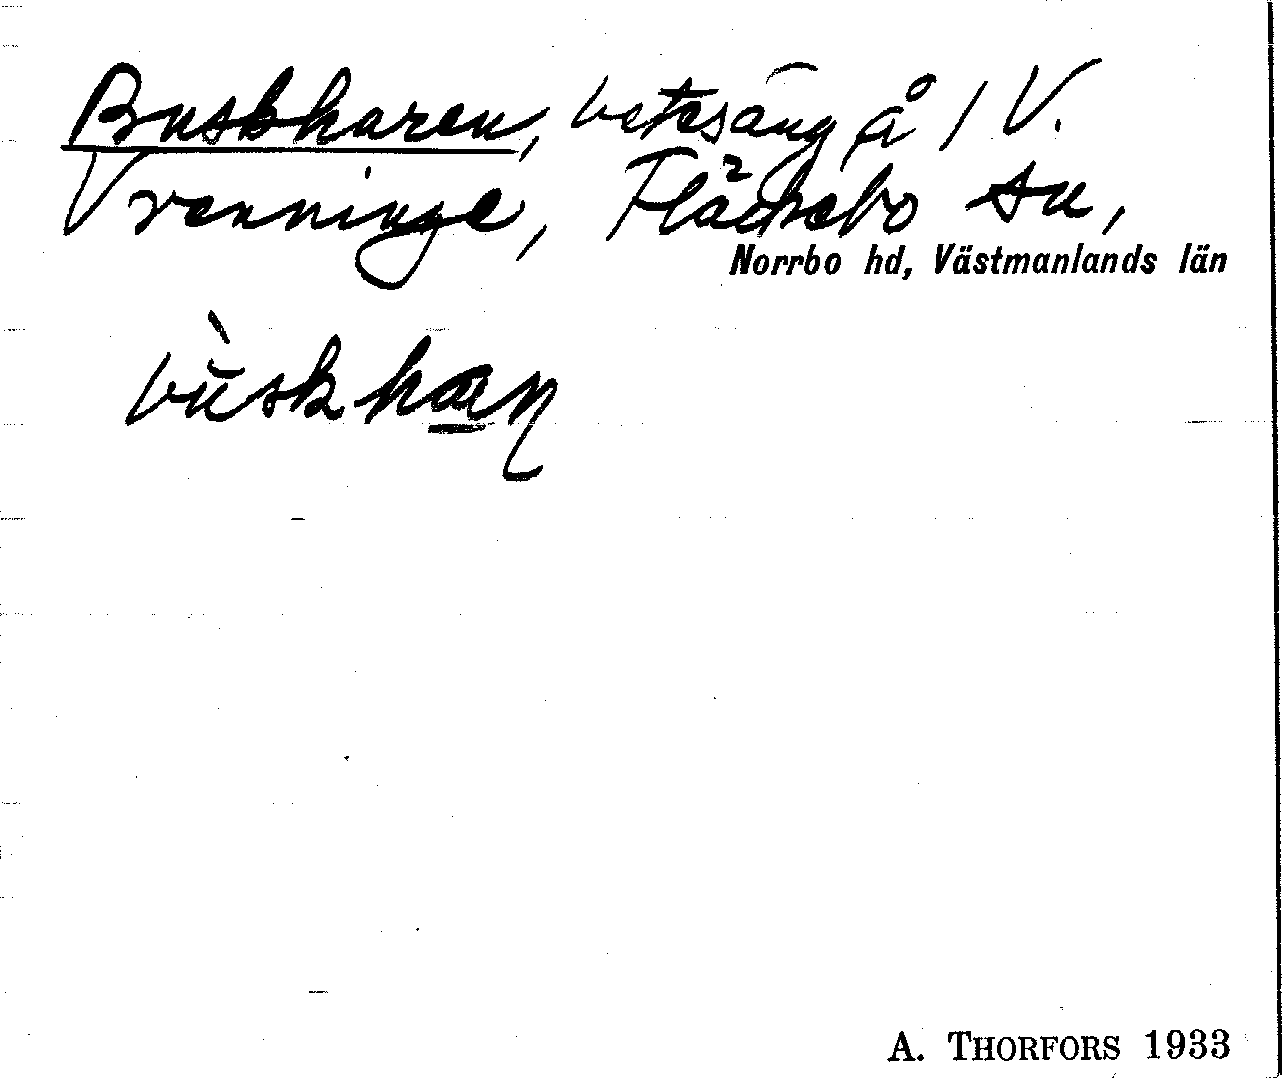 Buskharen, betesäng å 1 V.
Vrenninge, Fläckebo sn,
Norrbo hd, Västmanlands län
A. THORFORS 1933